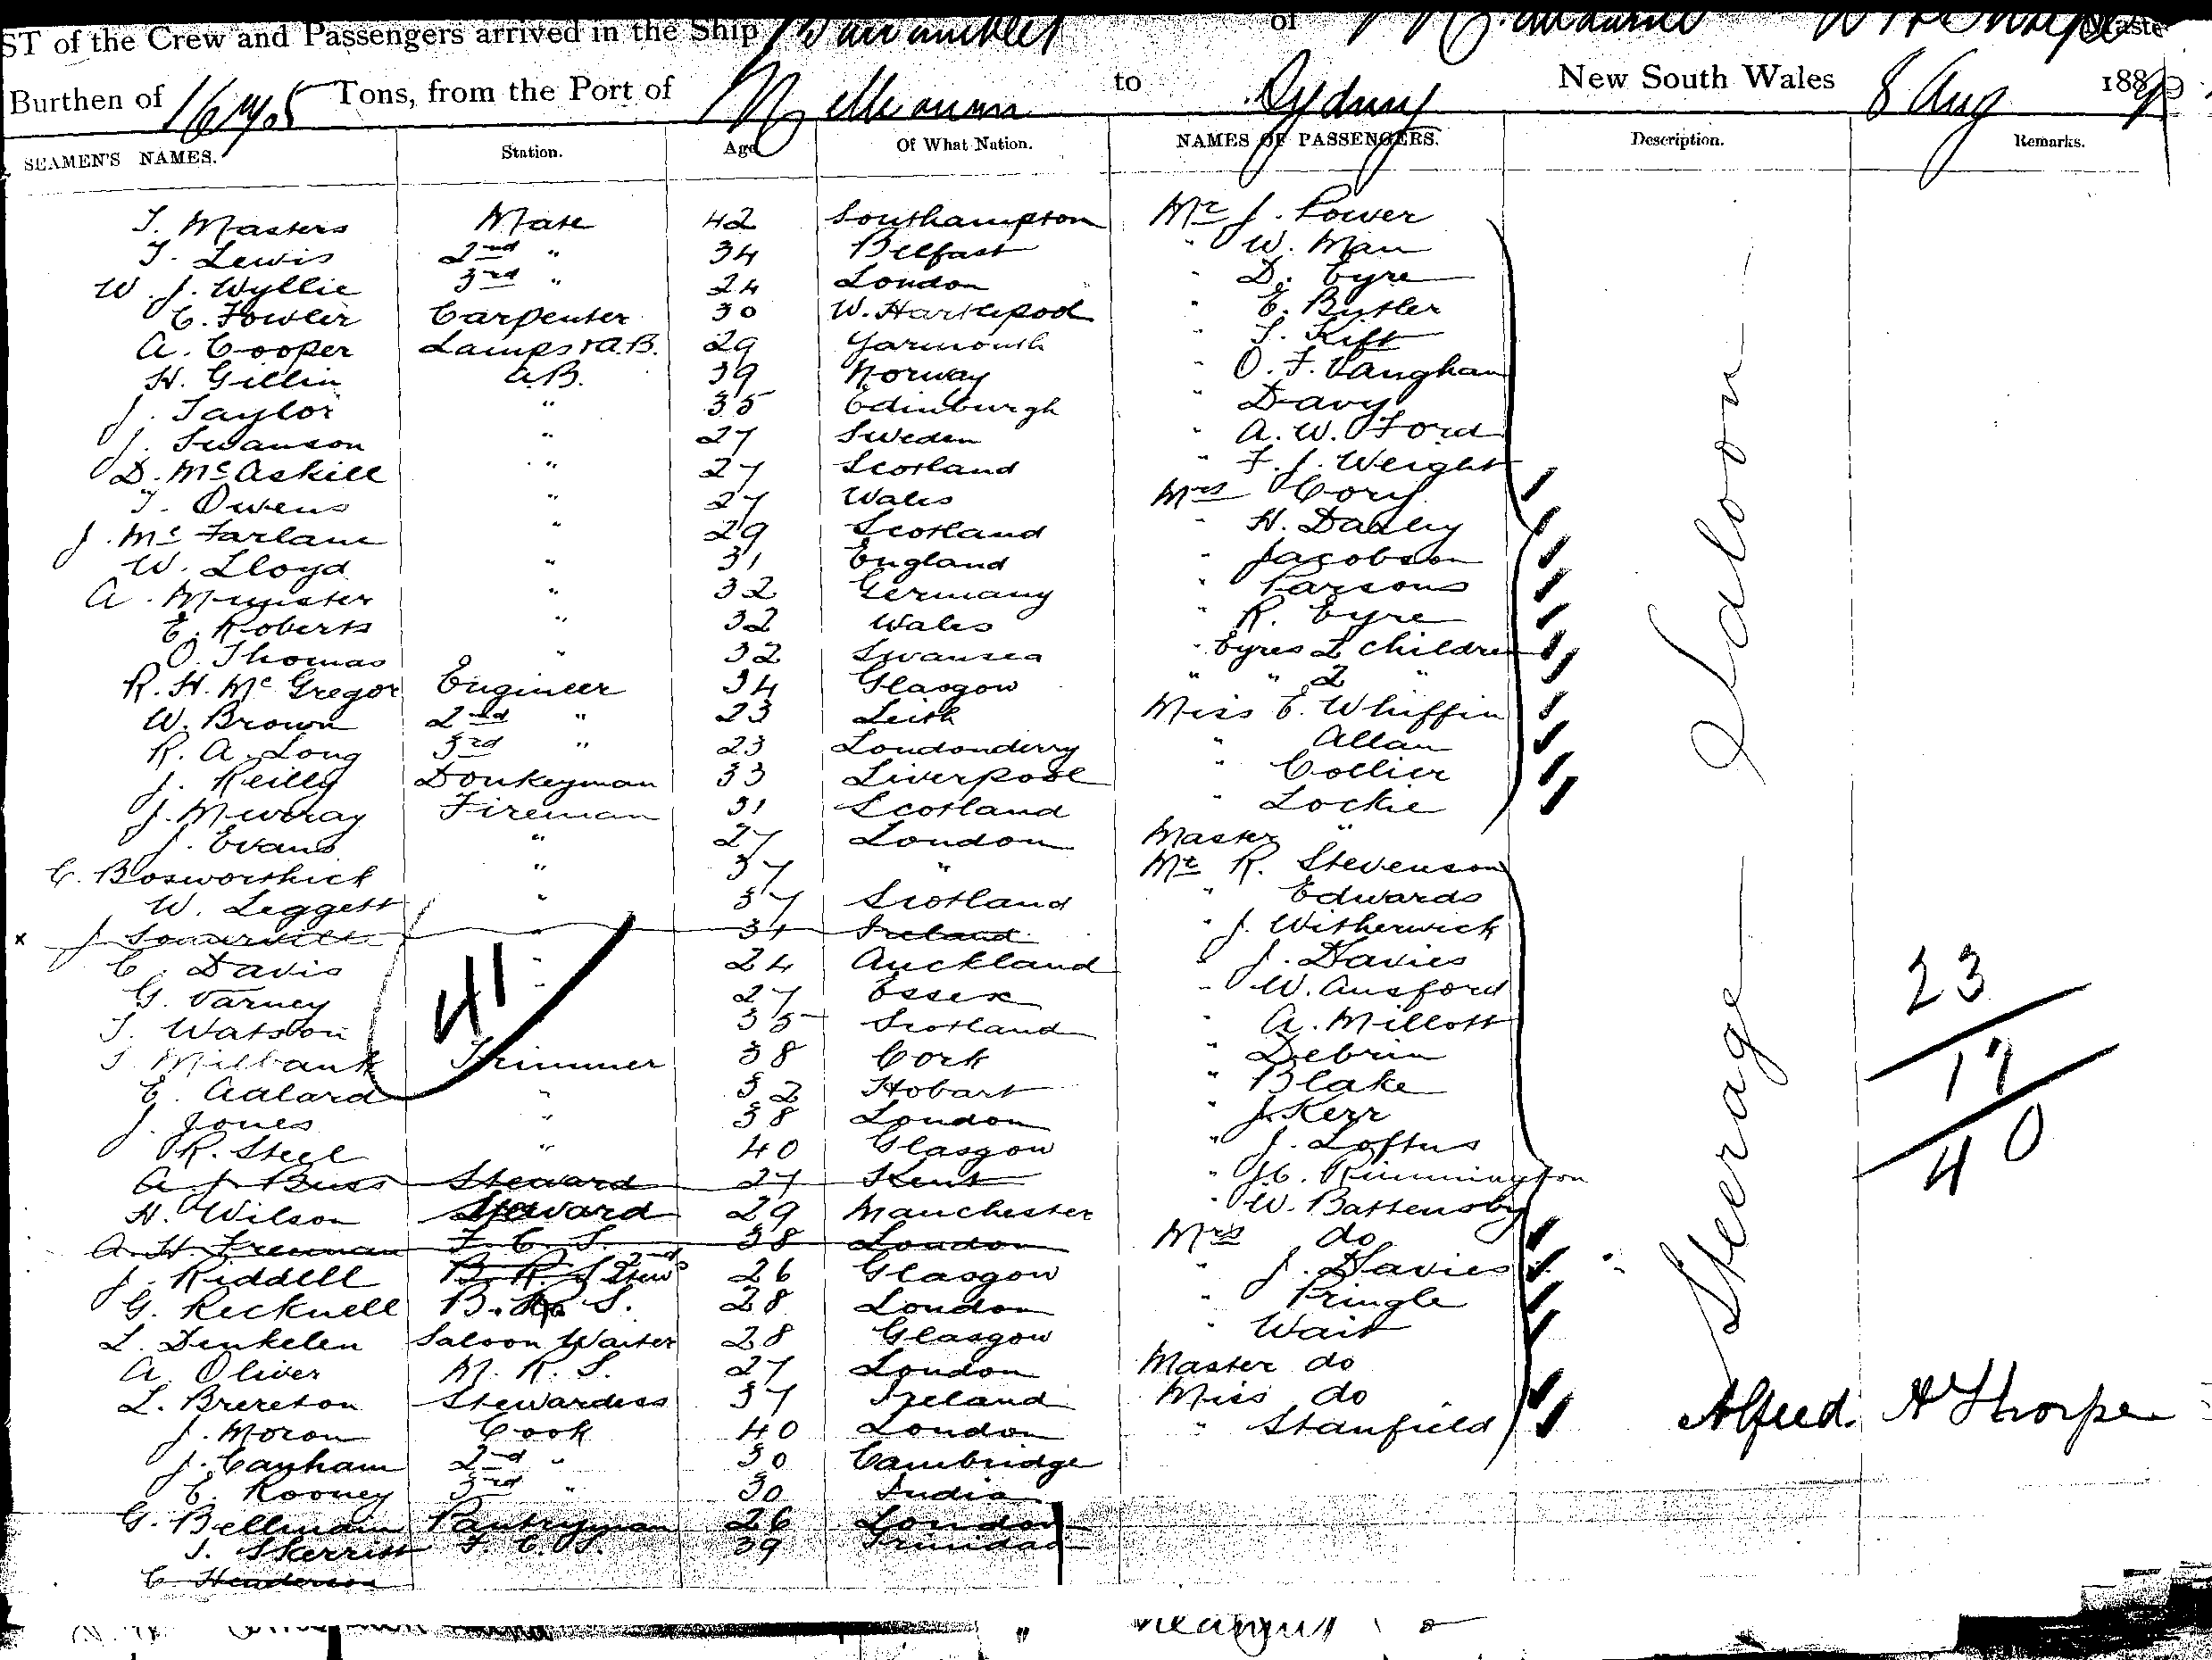 ST of the Crew and Passengers arrived in the Ship of
Burthen of Tons, from the Port of Melbourne to Sydney New South Wales 8 Aug 188
SEAMEN'S NAMES. Station. Age Of What Nation. NAMES OF PASSENGERS. Description. Remarks.
T. Masters Mate 42 Southampton Mr J. Power
T. Lewis 2nd " 34 Belfast " W. Man
W. J. Wyllie 3rd " 24 London " D. Eyre
C. Fowler Carpenter 30 W. Hartlepool " E. Butler
A. Cooper Lamps & A.B. 29 Yarmouth " T. Kift
H. Gillin A.B. 39 Norway " O. F. Vaughan
J. Taylor " 35 Edinburgh " Davy
J. Swanson " 27 Sweden " A. W. Ford
D. McAskill " 27 Scotland " F. J. Weight
T. Owens " 27 Wales Mrs Cory
J. McFarlane " 29 Scotland " H. Danley
W. Lloyd " 31 England " Jacobson
A. Munster " 32 Germany " Parsons
E. Roberts " 32 Wales " R. Eyre
O. Thomas " 32 Swansea " Eyres 2 children
R. H. McGregor Engineer 34 Glasgow " " 2 "
W. Brown 2nd " 23 Leith Miss E. Whiffin
R. A. Long 3rd " 23 Londonderry " Allan
J. Reilly Donkeyman 33 Liverpool " Collier
J. Murray Fireman 31 Scotland " Lockie
J. Evans " 27 London Master "
C. Bosworthick " 37 " Mr R. Stevenson
W. Leggett " 37 Scotland " Edwards
x J Somerville " 31 Ireland " J. Witherwick
C. Davis " 24 Auckland " J. Davies
G. Varney " 27 Essex " W. Ansford
T. Watson " 35 Scotland " A. Millott
T. Milbank Trimmer 38 Cork " Debrin
E. Adlard " 32 Hobart " Blake
J. Jones " 38 London " J. Kerr
R. Steel " 40 Glasgow " J. Loftus
A. J. Buss Steward 27 Kent " Rimmington
H. Wilson Steward 29 Manchester " W. Battensby
A. H. Freeman F. C. S. 38 London Mrs do
J. Riddell B. R. S 2nd Stewd 26 Glasgow " J. Davies
G. Recknell B. R. S. 28 London " Pringle
L. Denkelen Saloon Waiter 28 Glasgow " Wait
A. Oliver M. R. S. 27 London Master do
L. Brereton Stewardess 37 Ireland Miss do
J. Moron Cook 40 London " Stanfield
J. Canham 2nd " 30 Cambridge
E. Rooney 3rd " 30 India
G. Bellmain Pantryman 26 London
T. Skerritt F. C. S. 39 Trinidad
C. Henderson
41
Saloon
Steerage
23
17
40
Alfred H Thorpe